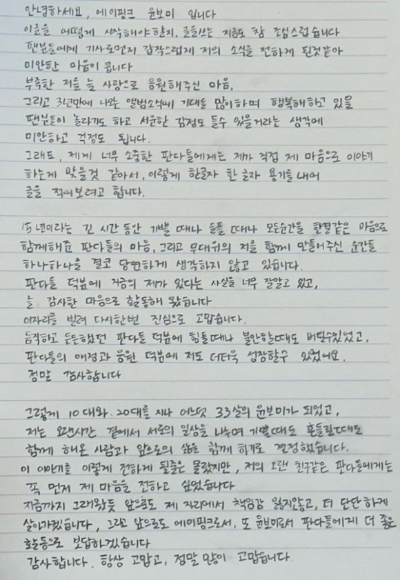 안녕하세요, 에이핑크 윤보미 입니다
이글을 어떻게 시작해야할지, 글을쓰는 지금도 참 조심스럽습니다
팬분들에게 기사로먼저 갑작스럽게 저의 소식을 전하게 된것같아
미안한 마음이 큽니다
부족한 저를 늘 사랑으로 응원해주신 마음,
그리고 3년만에 나오는 앨범소식에 기대를 많이하며 행복해하고 있을
팬분들이 놀라기도 하고 서운한 감정도 들수 있을거라는 생각에
미안하고 걱정도 됩니다.
그래도, 제게 너무 소중한 판다들에게는 제가 직접 제 마음으로 이야기
하는게 맞을것 같아서, 이렇게 한글자 한글자 용기를 내어
글을 적어보려고 합니다.
15년이라는 긴 시간 동안 기쁠 때나 슬플 때나 모든순간을 한결같은 마음으로
함께해준 판다들의 마음, 그리고 무대위의 저를 함께 만들어주신 순간들
하나하나를 결코 당연하게 생각하지 않고 있습니다.
판다들 덕분에 지금의 제가 있다는 사실을 너무 잘알고 있고,
늘 감사한 마음으로 활동해 왔습니다
이자리를 빌려 다시한번 진심으로 고맙습니다.
묵직하고 든든했던 판다들 덕분에 힘들때나 불안할때도 버틸수있었고,
판다들의 애정과 응원 덕분에 저도 더더욱 성장할수 있었어요.
정말 감사합니다
그렇게 10대와 20대를 지나 어느덧 33살의 윤보미가 되었고,
저는 오랜시간 곁에서 서로의 일상을 나누며 기쁠때도 흔들릴때도
함께 해온 사람과 앞으로의 삶을 함께 하기로 결정했습니다.
이 이야기를 이렇게 전하게 될줄은 몰랐지만, 저의 오랜 친구같은 판다들에게는
꼭 먼저 제 마음을 전하고 싶었습니다
지금까지 그래왔듯 앞으로도 제 자리에서 책임감 잃지않고, 더 단단하게
살아가겠습니다, 그리고 앞으로도 에이핑크로서, 또 윤보미로서 판다들에게 더 좋은
활동으로 보답하겠습니다
감사합니다. 항상 고맙고, 정말 많이 고맙습니다